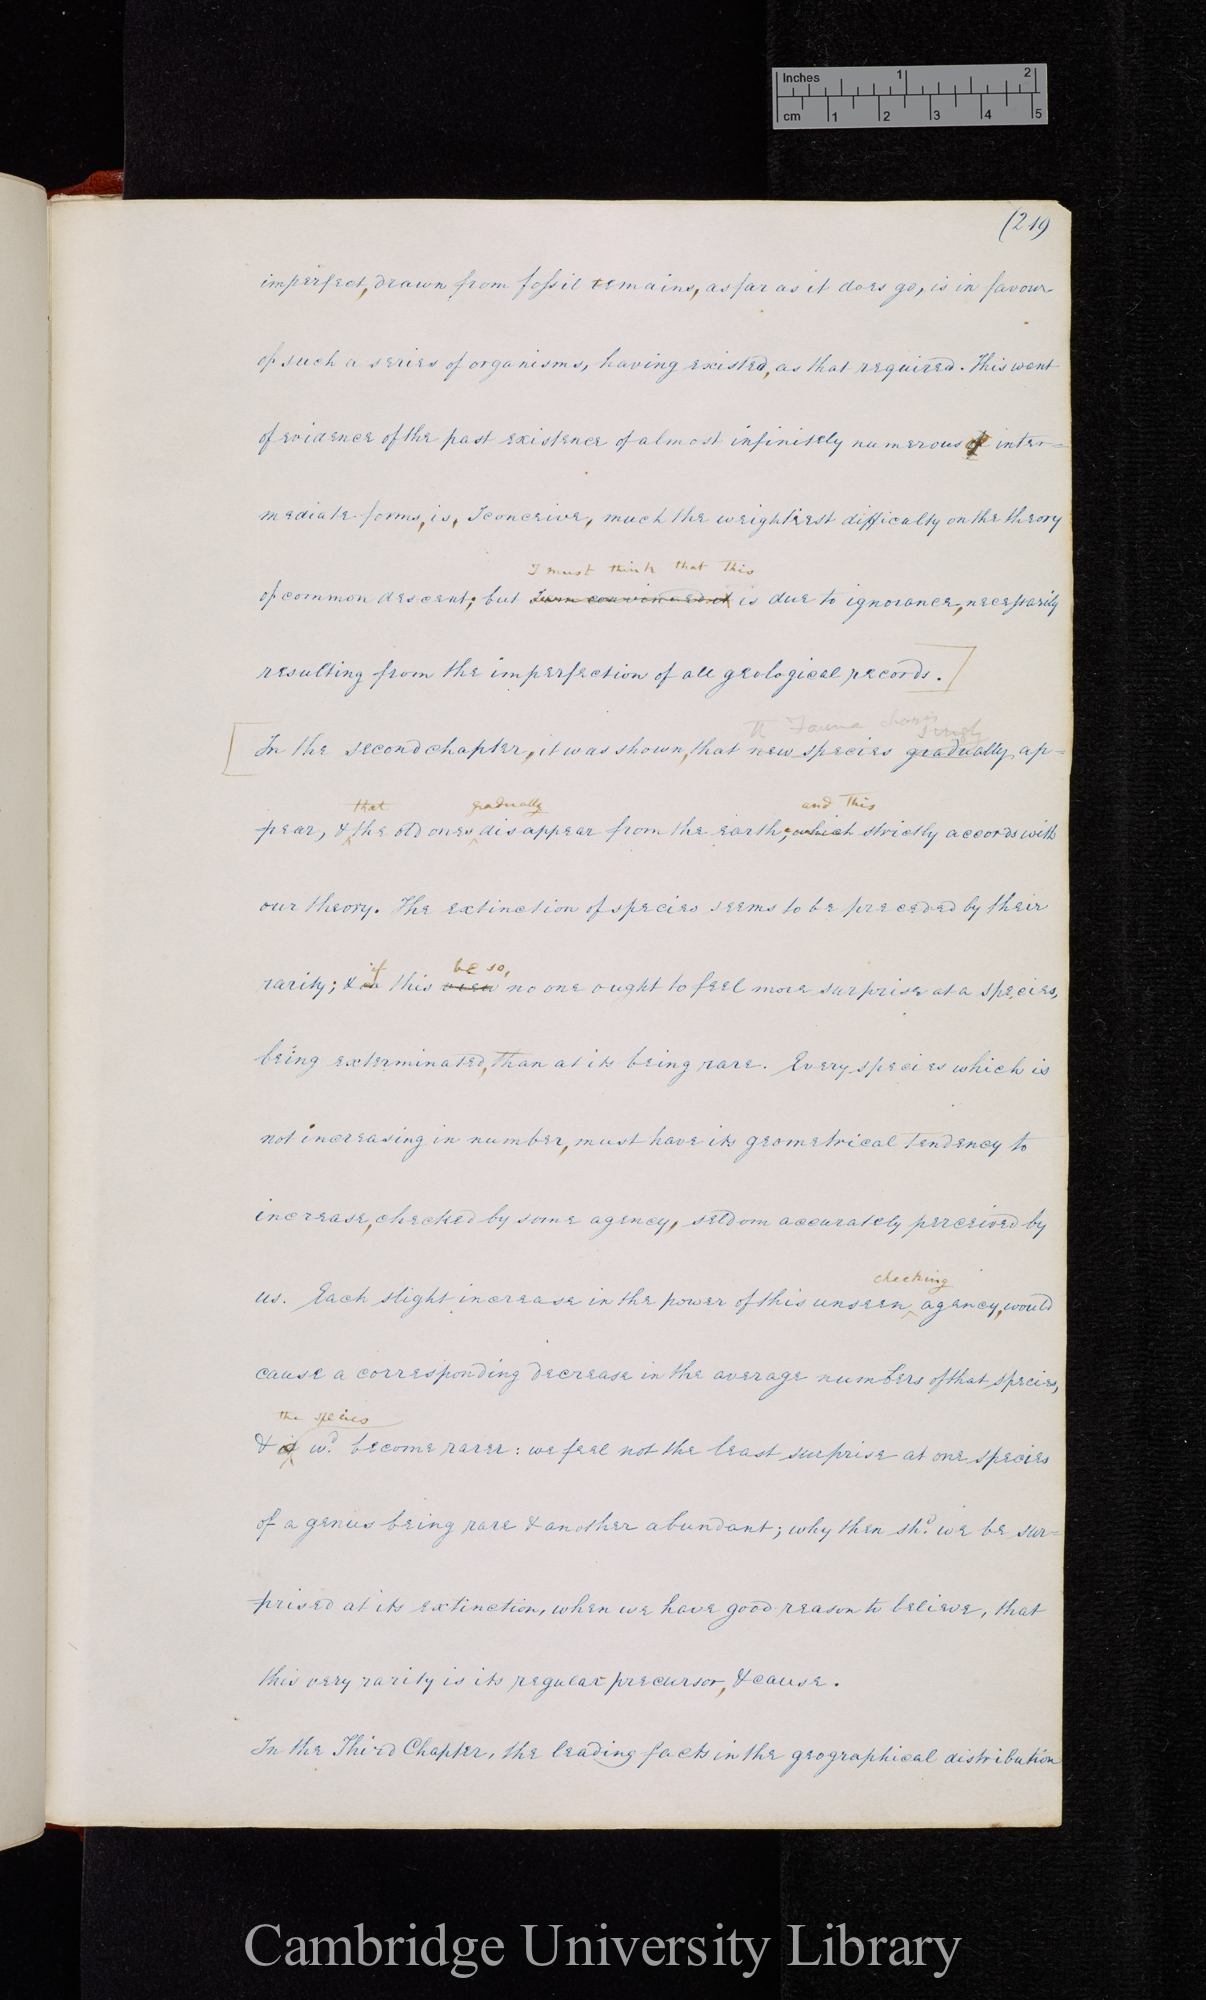 Inches 1 2
cm 1 2 3 4 5
(219
imperfect, drawn from fossil remains, as far as it does go, is in favour
of such a series of organisms, having existed, as that required. This want
of evidence of the past existence of almost infinitely numerous inter=
mediate forms, is, I conceive, much the weightiest difficulty on the theory
I must think that this
of common descent; but I am convinced it is due to ignorance, necessarily
resulting from the imperfection of all geological records.]
the Fauna singly
[In the second chapter, it was shown, that new species gradually ap=
that gradually and this
pear, & the old ones disappear from the earth; which strictly accords with
our theory. The extinction of species seems to be preceded by their
if be so,
rarity; & this no one ought to feel more surprise at a species,
being exterminated, than at its being rare. Every species which is
not increasing in number, must have its geometrical tendency to
increase, checked by some agency, seldom accurately perceived by
checking
us. Each slight increase in the power of this unseen agency, would
cause a corresponding decrease in the average numbers of that species,
the species
& wd. become rarer: we feel not the least surprise at one species
of a genus being rare & another abundant; why then shd. we be sur=
prised at its extinction, when we have good reason to believe, that
this very rarity is its regular precursor, & cause.
In the Third Chapter, the leading facts in the geographical distribution
Cambridge University Library